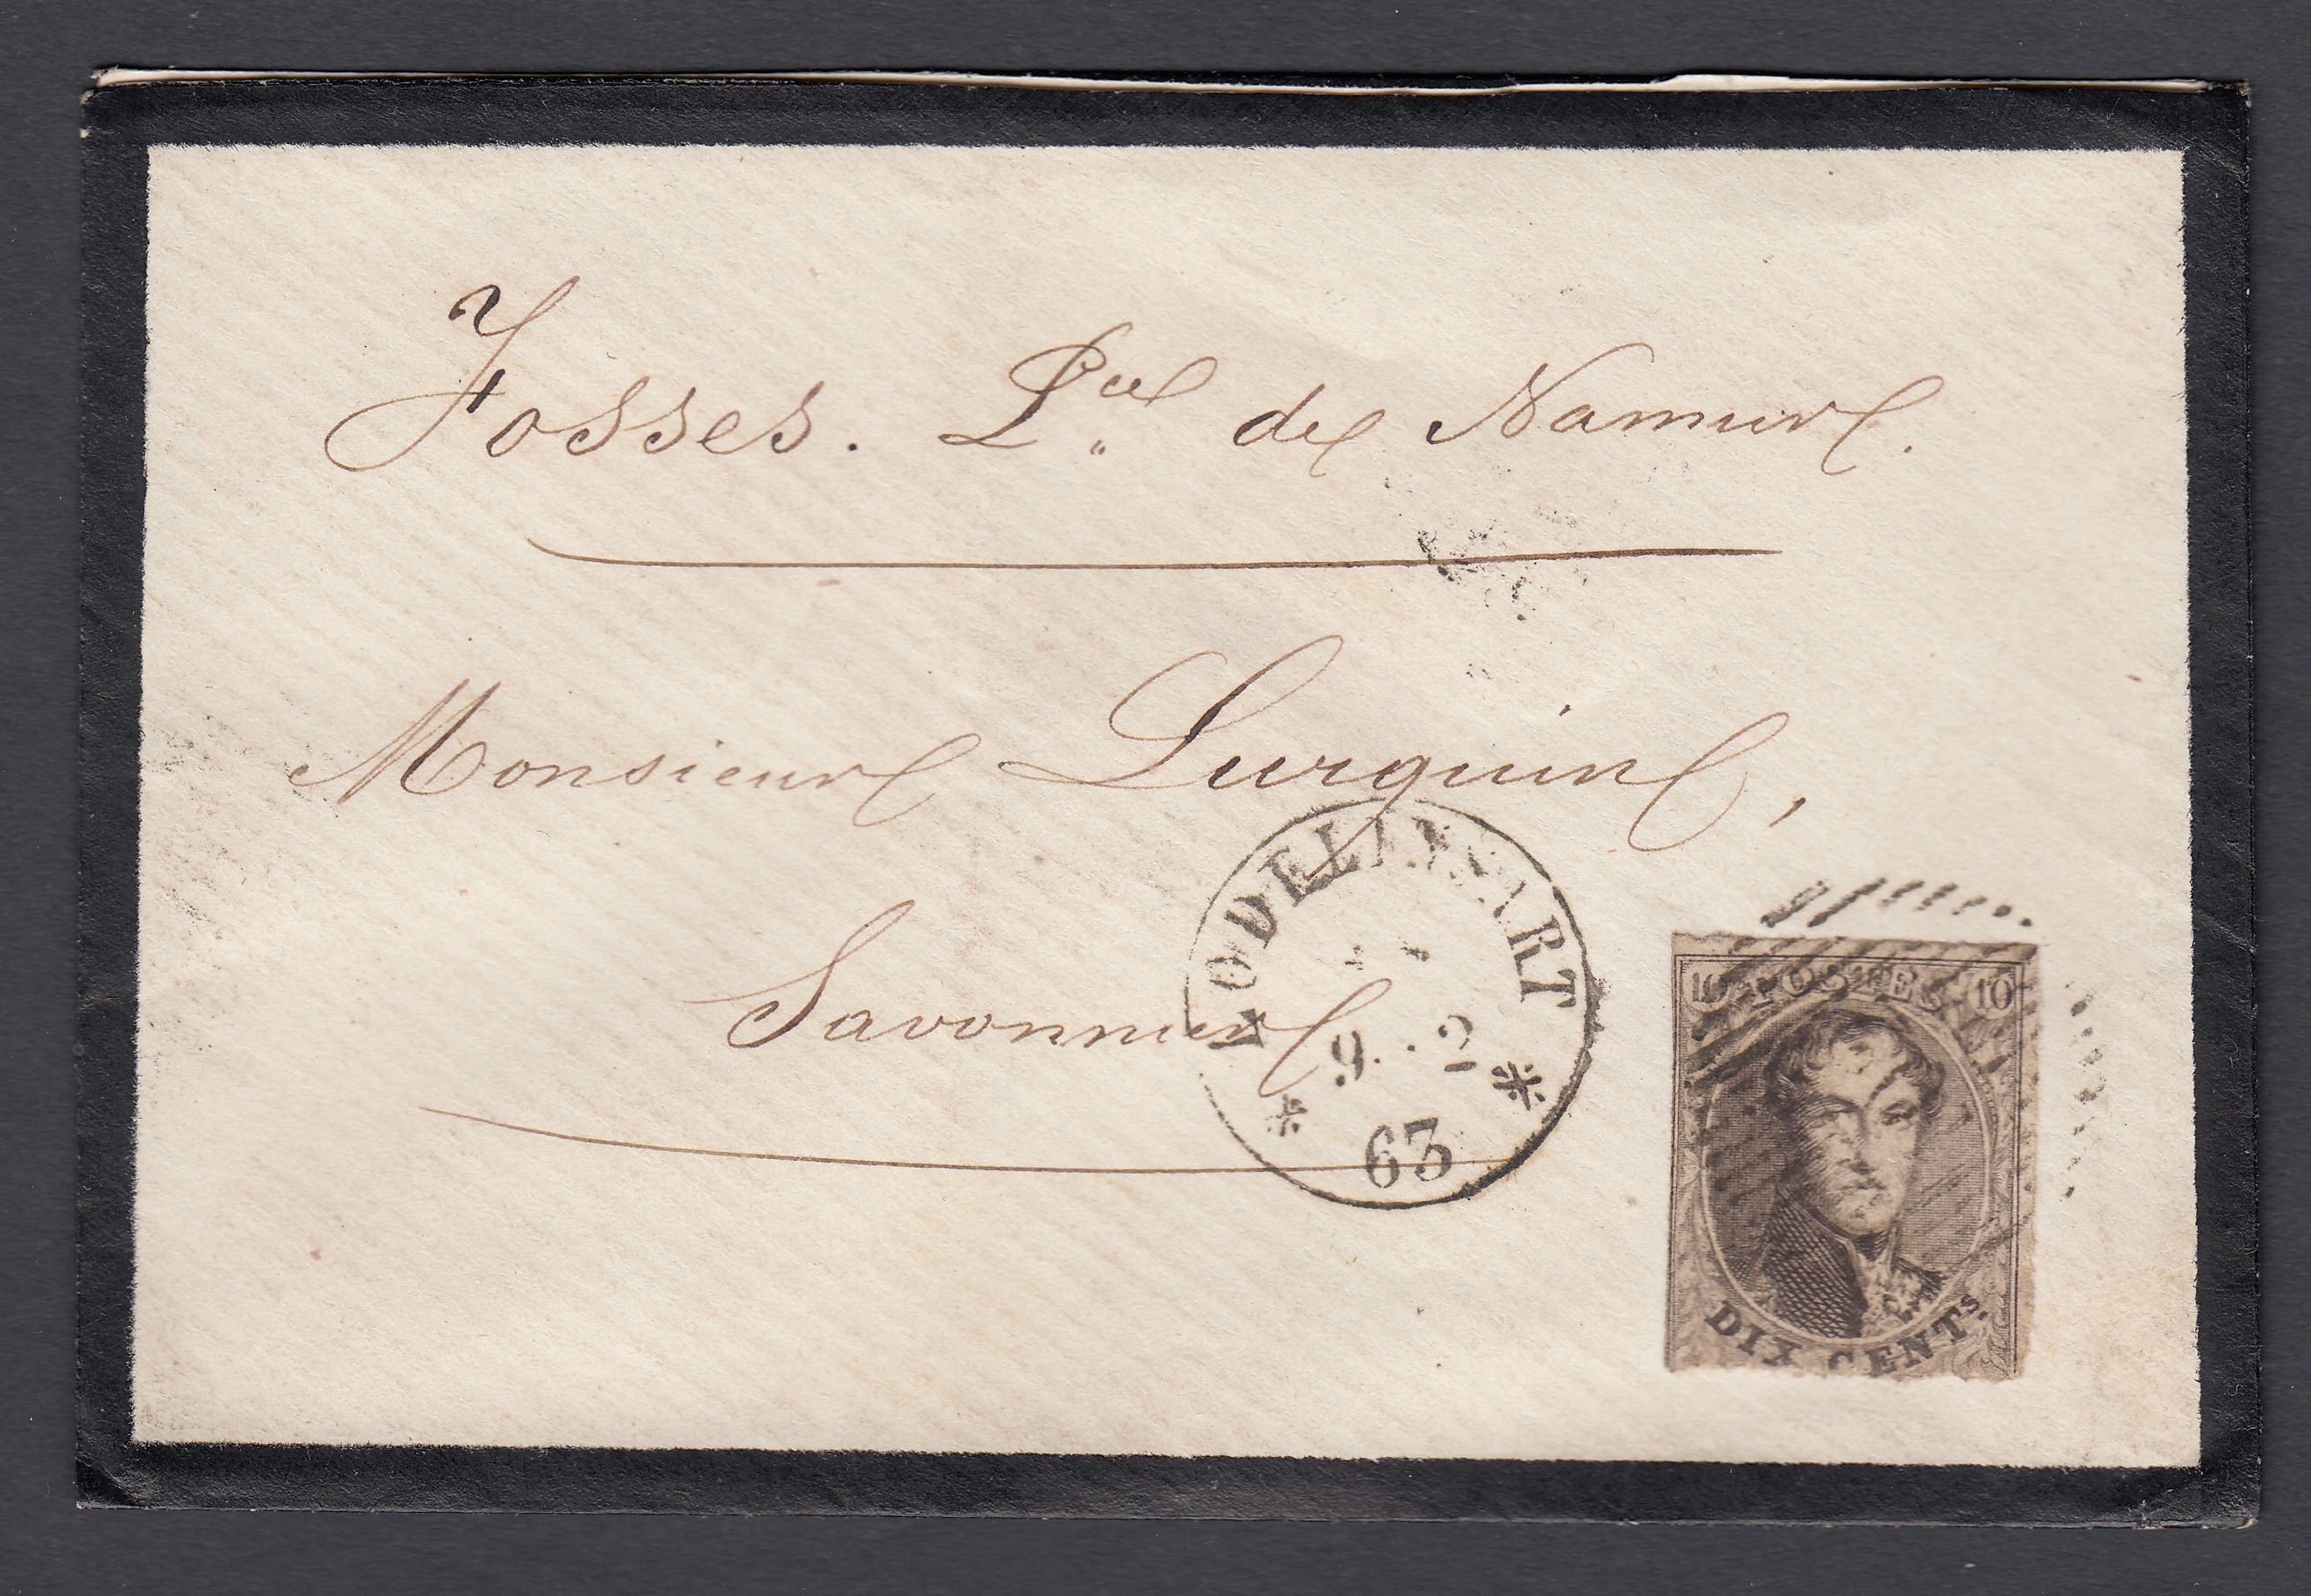 Fosses. Pce. de Namur.
Monsieur Lurquin,
Savonnier
LODELINSART
9. . 2
63
10 POSTES 10
DIX CENTS.